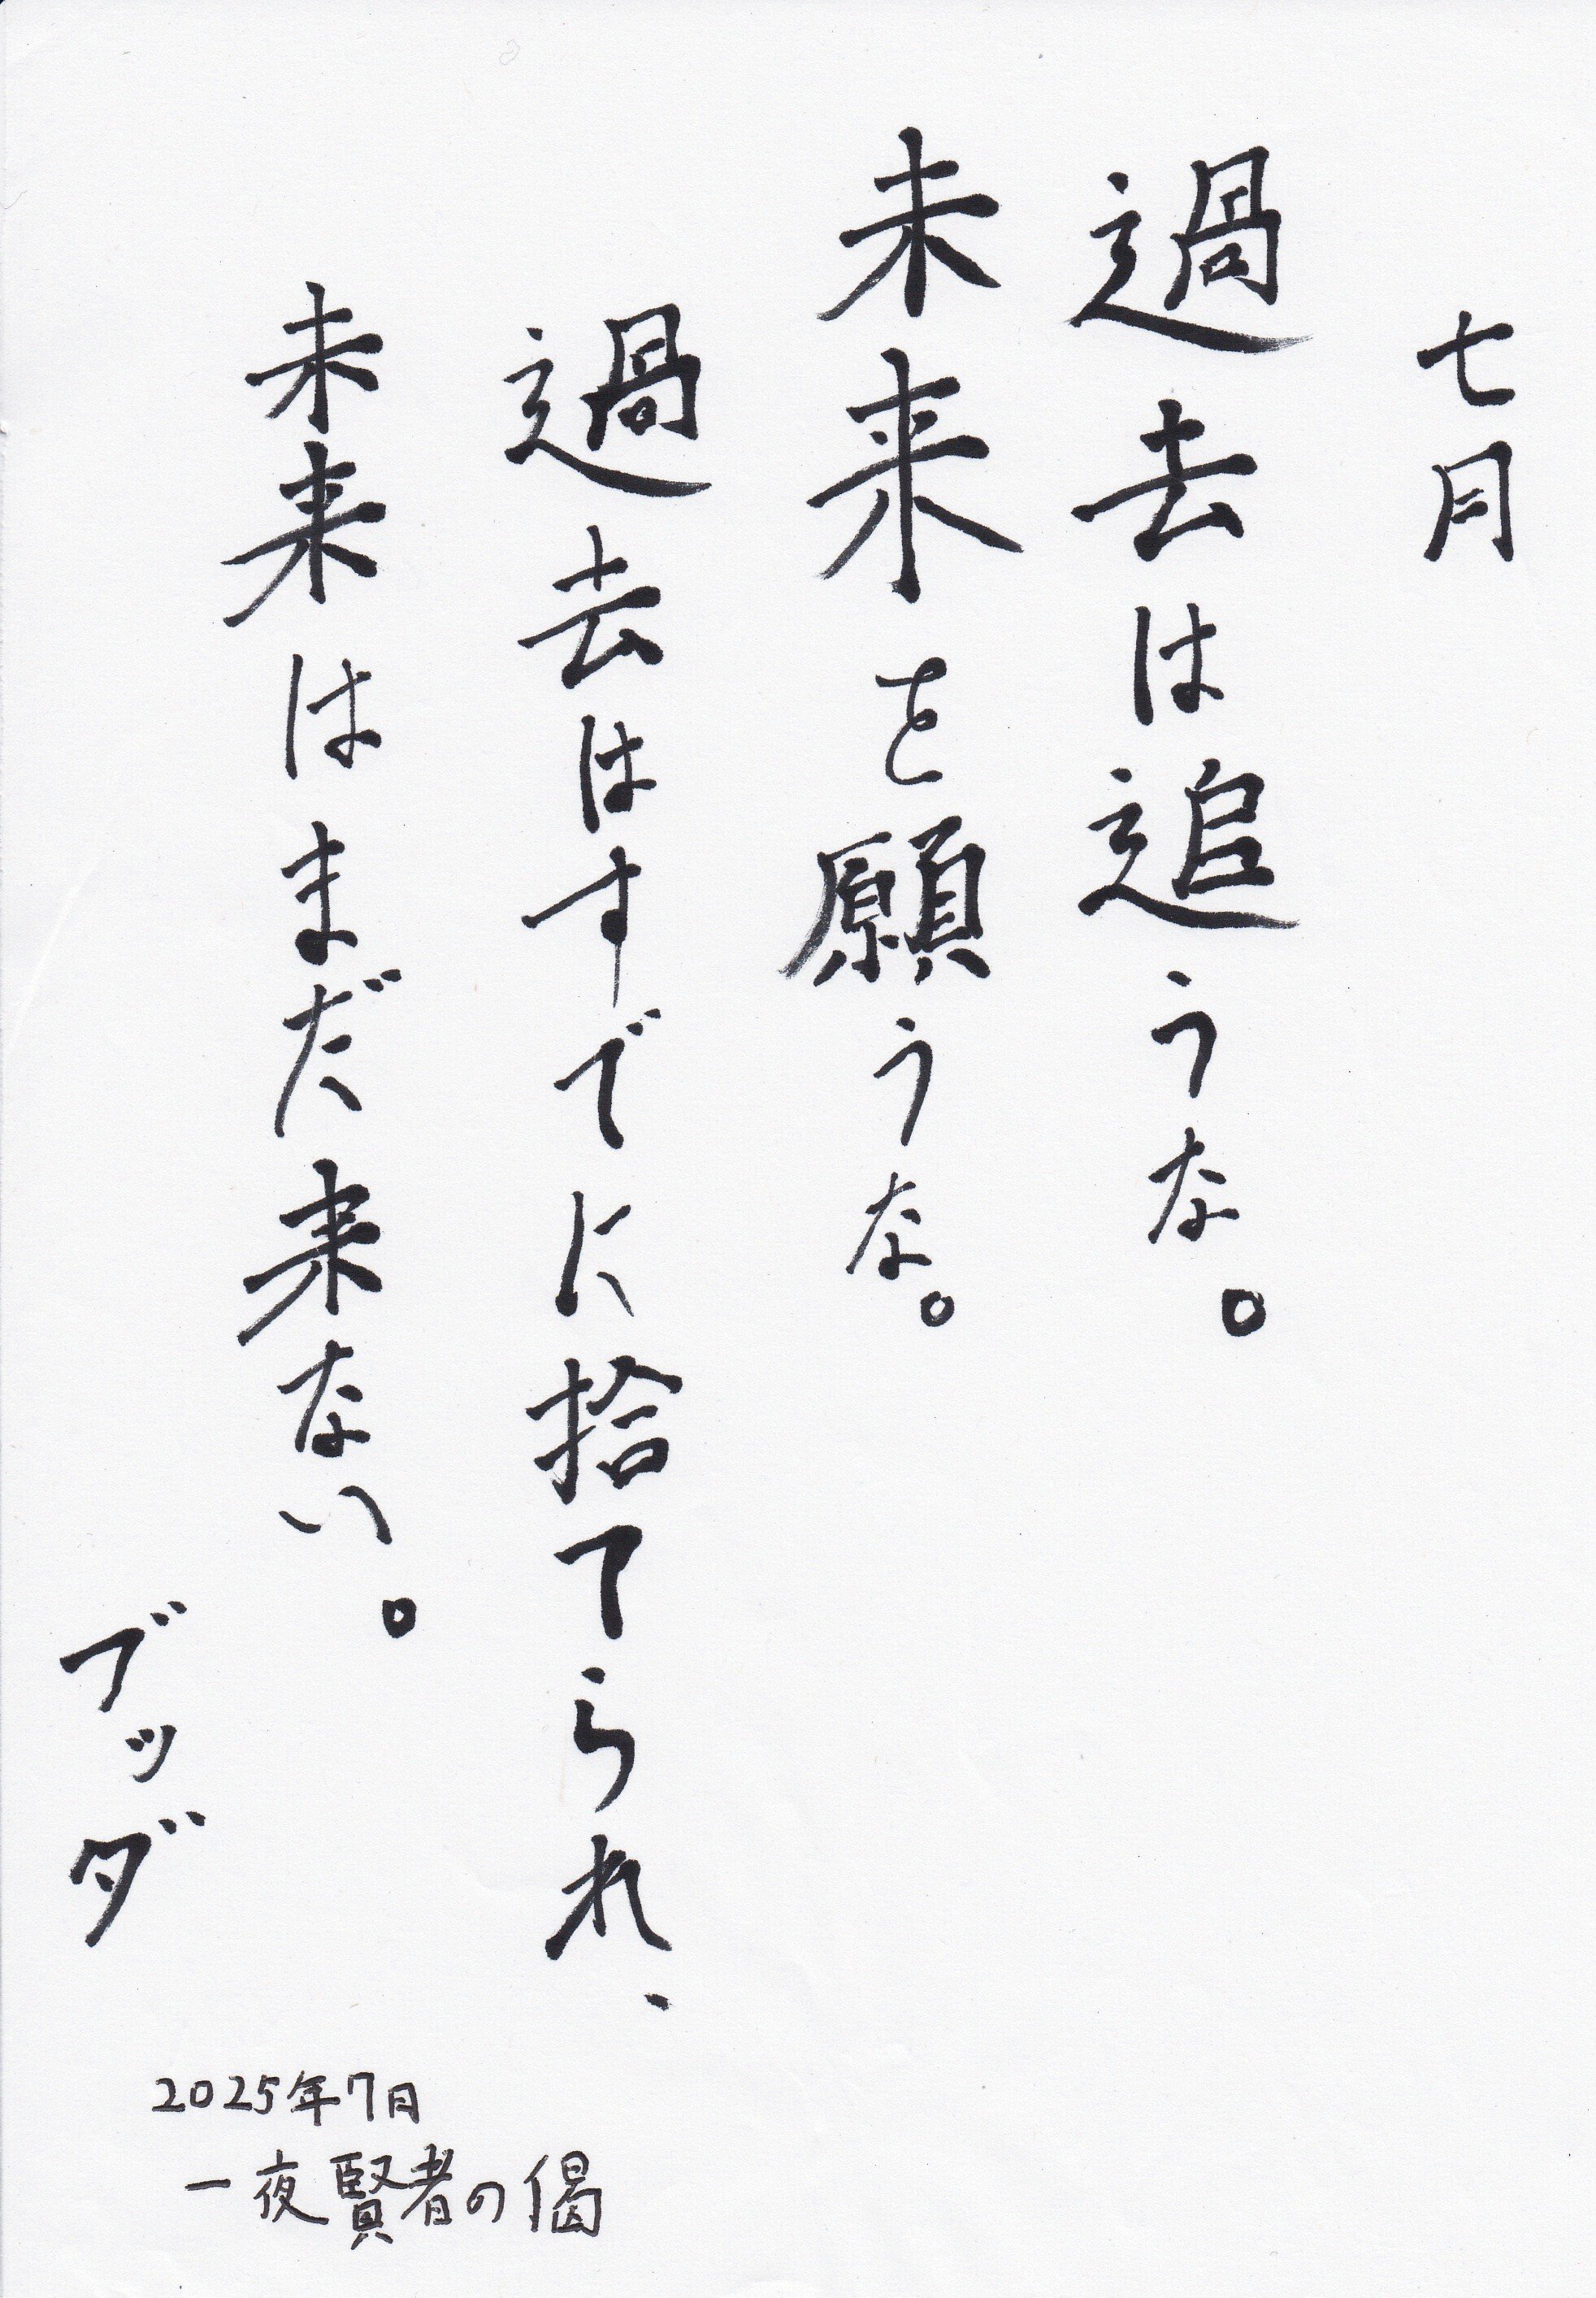 七月
過去は追うな。
未来を願うな。
過去はすでに拾てられ、
未来はまだ来ない。
ブッダ
2025年7月
一夜賢者の偈